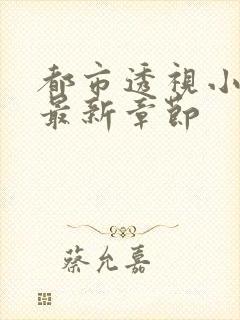 都市透視小
最新章節
蔡允嘉